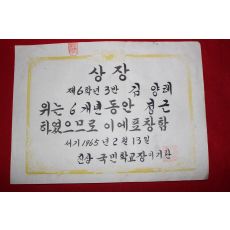 상장
제6학년 3반 김양례
위는 6개년동안 정근
하였으므로 이에표창함
서기 1965년 2월 13일
국민학교장